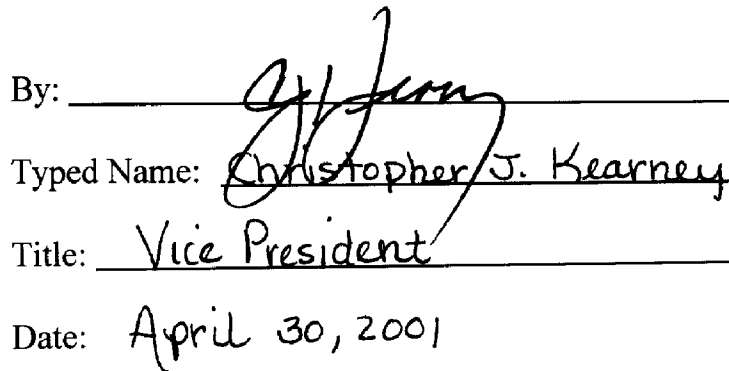 By:
Typed Name: Christopher J. Kearney
Title: Vice President
Date: April 30, 2001